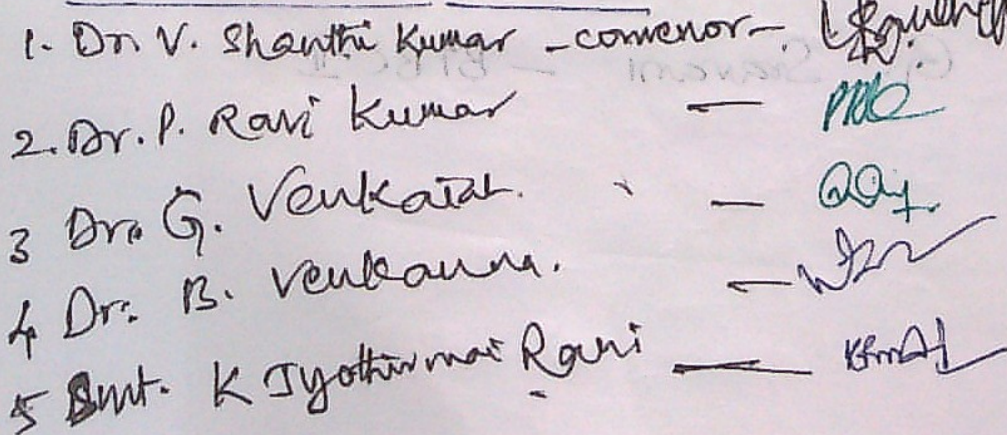 1. Dr. V. Shanthi Kumar - convenor -
2. Dr. P. Ravi Kumar —
3 Dr. G. Venkaiah. —
4 Dr. B. Venkanna. —
5 Smt. K Jyothirmai Rani —